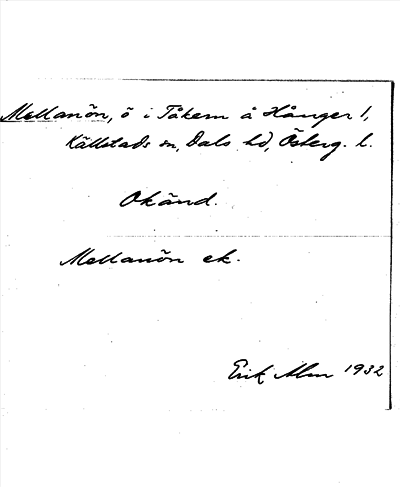 Mellanön, ö i Tåkern å Hånger 1,
Källstads sn, Dals hd, Österg. l.
Okänd.
Mellanön ek.
Erik Alm 1932